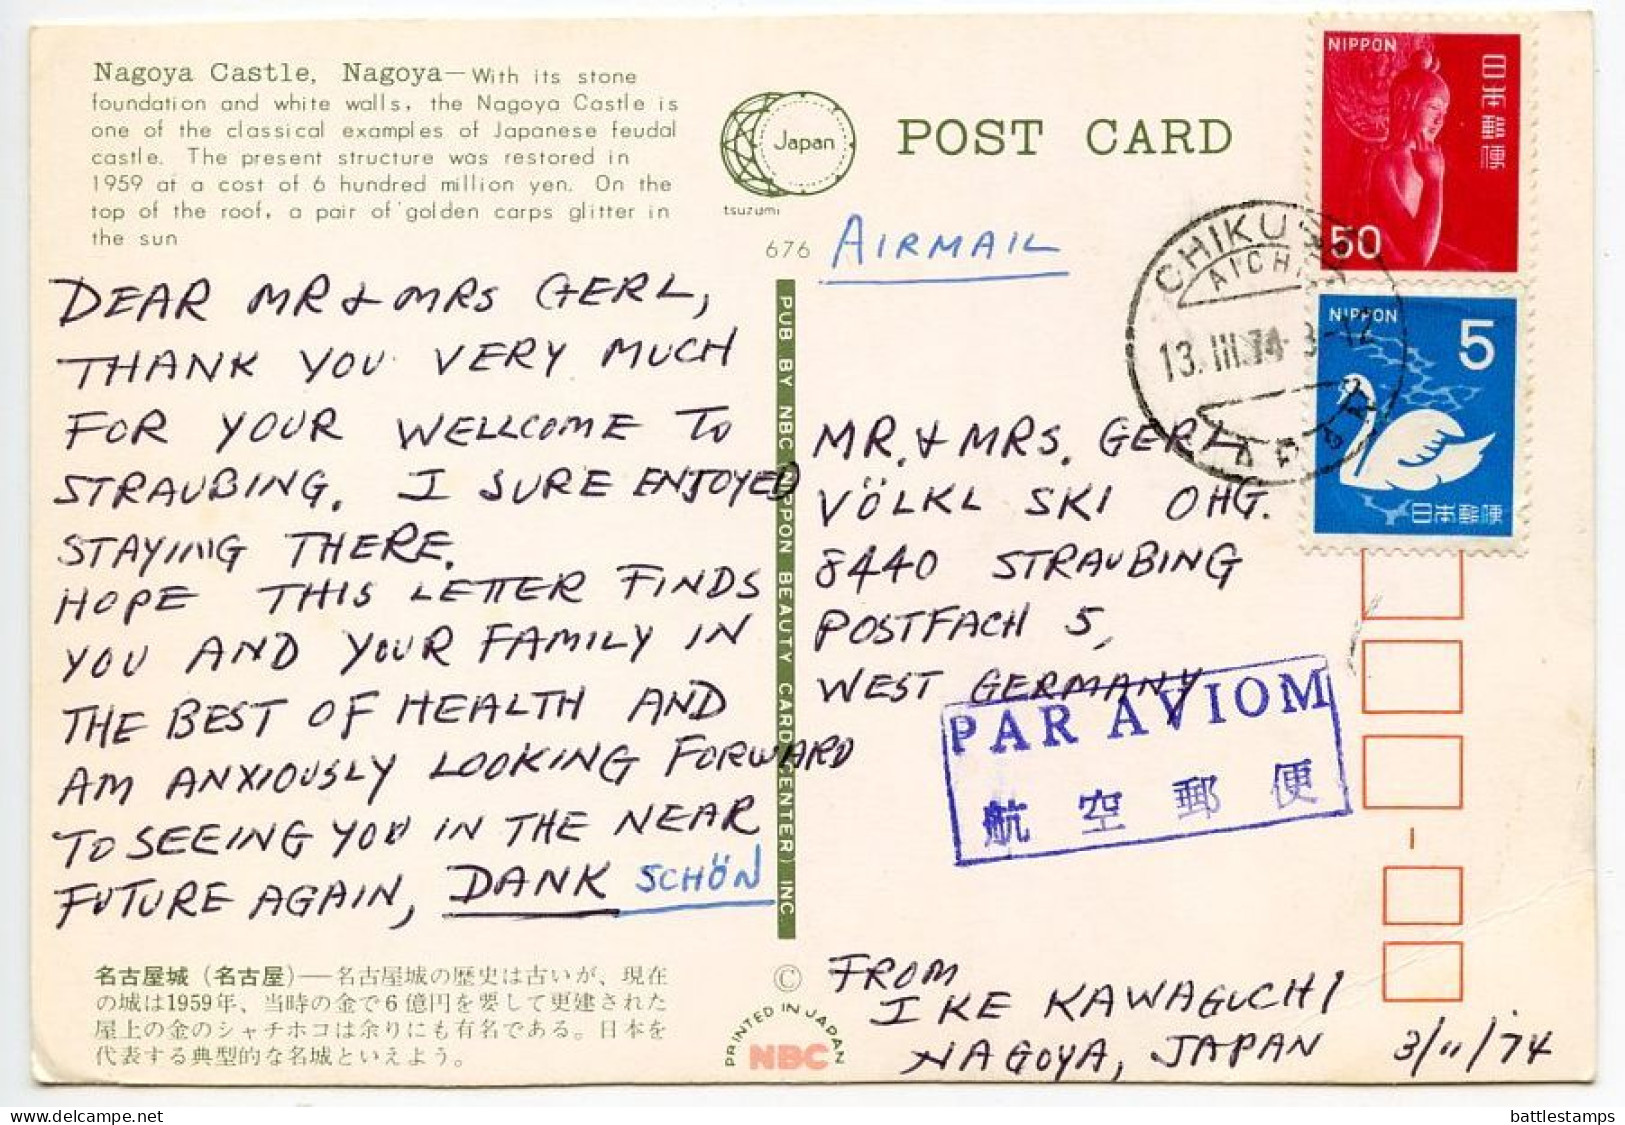 Nagoya Castle, Nagoya—With its stone
foundation and white walls, the Nagoya Castle is
one of the classical examples of Japanese feudal
castle. The present structure was restored in
1959 at a cost of 6 hundred million yen. On the
top of the roof, a pair of golden carps glitter in
the sun
Japan
tsuzumi
POST CARD
676
AIRMAIL
NIPPON
日本郵便
50
NIPPON
5
日本郵便
CHIKUSA
AICHI
13.III.74
JAPAN
DEAR MR & MRS GERL,
THANK YOU VERY MUCH
FOR YOUR WELLCOME TO
STRAUBING. I SURE ENJOYED
STAYING THERE.
HOPE THIS LETTER FINDS
YOU AND YOUR FAMILY IN
THE BEST OF HEALTH AND
AM ANXIOUSLY LOOKING FORWARD
TO SEEING YOU IN THE NEAR
FUTURE AGAIN, DANK SCHÖN
PUB BY NBC (NIPPON BEAUTY CARD CENTER) INC
MR. & MRS. GERL
VÖLKL SKI OHG.
8440 STRAUBING
POSTFACH 5,
WEST GERMANY
PAR AVIOM
航空郵便
名古屋城（名古屋）—名古屋城の歴史は古いが、現在
の城は1959年、当時の金で6億円を要して更建された
屋上の金のシャチホコは余りにも有名である。日本を
代表する典型的な名城といえよう。
©
PRINTED IN JAPAN
NBC
FROM
IKE KAWAGUCHI
NAGOYA, JAPAN 3/11/'74
delcampe.net
battlestamps